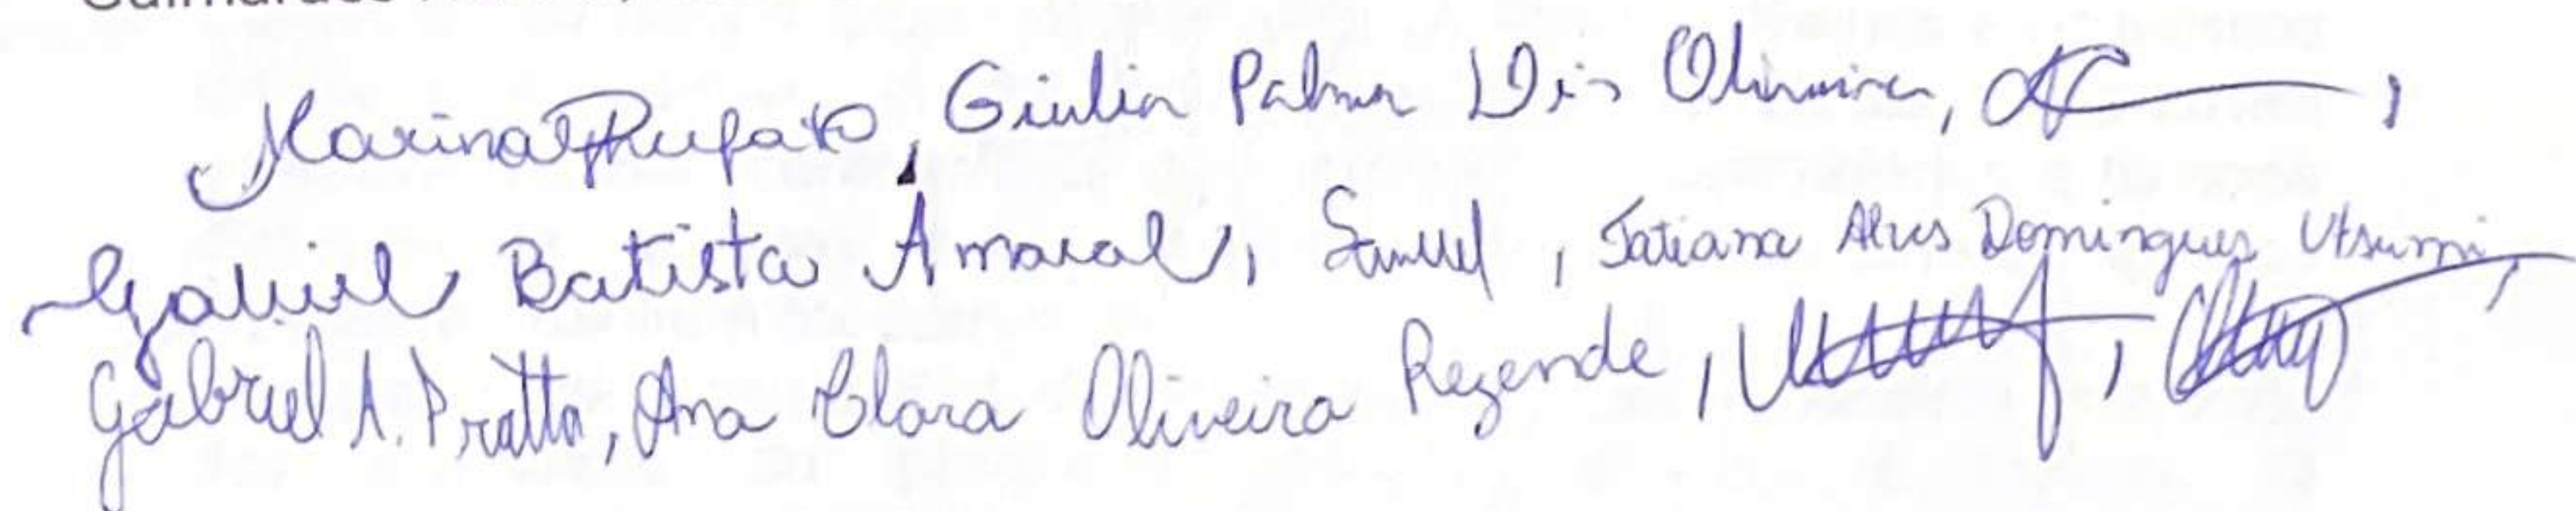 Marina Rufato, Giulia Palma Oliveira,
Gabriel Batista Amaral, Samuel, Tatiana Alves Domingues Utsumi,
Gabriel A. Pratta, Ana Clara Oliveira Rezende,